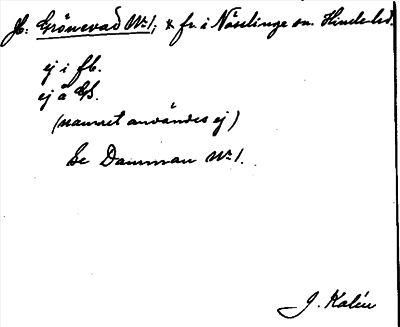 Jb: Grönevad Nr 1, & fr. i Nösslinge sn. Himle hd.
ej i fb.
ej å GS.
(namnet användes ej)
Se Damman Nr 1.
J. Kalén